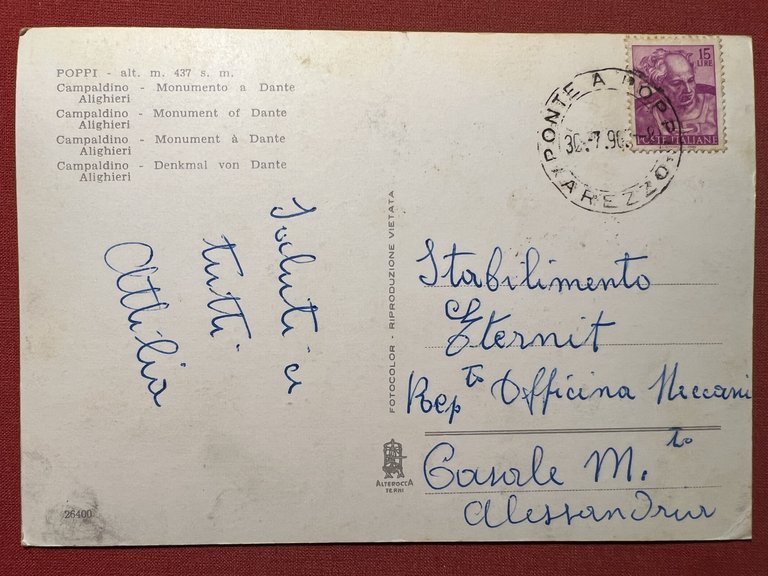 POPPI - alt. m. 437 s. m.
Campaldino - Monumento a Dante
Alighieri
Campaldino - Monument of Dante
Alighieri
Campaldino - Monument à Dante
Alighieri
Campaldino - Denkmal von Dante
Alighieri
Saluti a
tutti
Athilia
26400
FOTOCOLOR - RIPRODUZIONE VIETATA
ALTEROCCA
TERNI
15
LIRE
POSTE ITALIANE
PONTE A POPPI
(AREZZO)
Stabilimento
Eternit
Repto Officina Meccani
Casale M.to
Alessandria